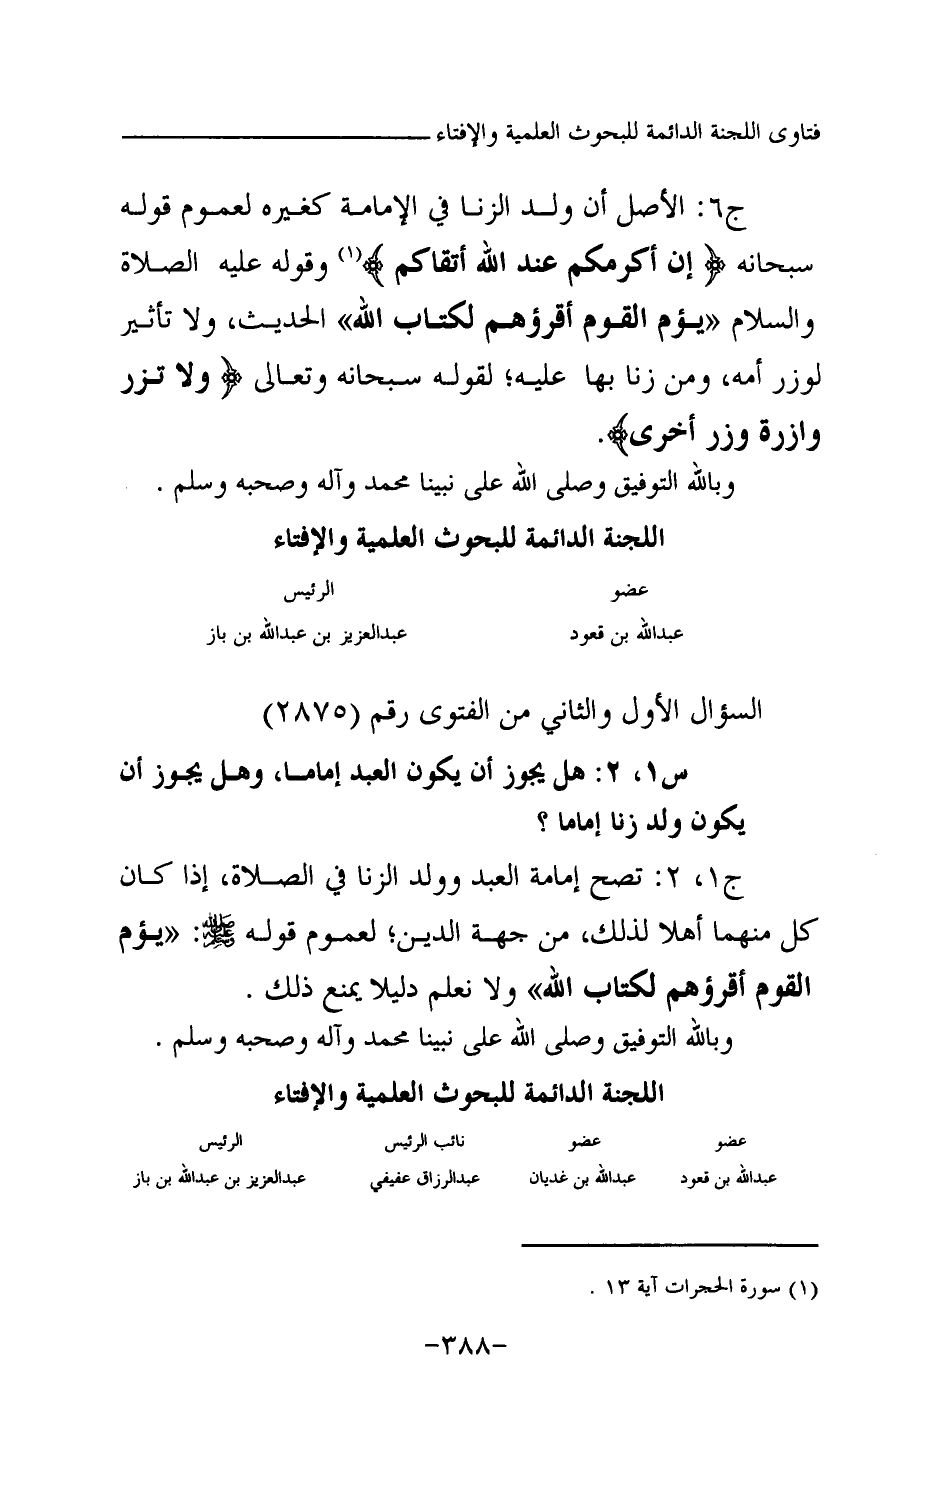 فتاوى اللجنة الدائمة للبحوث العلمية والإفتاء
ج٦: الأصل أن ولد الزنا في الإمامة كغيره لعموم قوله
سبحانه ﴿ إن أكرمكم عند الله أتقاكم ﴾(١) وقوله عليه الصلاة
والسلام «يؤم القوم أقرؤهم لكتاب الله» الحديث، ولا تأثير
لوزر أمه، ومن زنا بها عليه؛ لقوله سبحانه وتعالى ﴿ ولا تزر
وازرة وزر أخرى﴾.
وبالله التوفيق وصلى الله على نبينا محمد وآله وصحبه وسلم .
اللجنة الدائمة للبحوث العلمية والإفتاء
عضو الرئيس
عبدالله بن قعود عبدالعزيز بن عبدالله بن باز
السؤال الأول والثاني من الفتوى رقم (٢٨٧٥)
س١، ٢: هل يجوز أن يكون العبد إماما، وهل يجوز أن
يكون ولد زنا إماما ؟
ج١، ٢: تصح إمامة العبد وولد الزنا في الصلاة، إذا كان
كل منهما أهلا لذلك، من جهة الدين؛ لعموم قوله ﷺ: «يؤم
القوم أقرؤهم لكتاب الله» ولا نعلم دليلا يمنع ذلك .
وبالله التوفيق وصلى الله على نبينا محمد وآله وصحبه وسلم .
اللجنة الدائمة للبحوث العلمية والإفتاء
عضو عضو نائب الرئيس الرئيس
عبدالله بن قعود عبدالله بن غديان عبدالرزاق عفيفي عبدالعزيز بن عبدالله بن باز
(١) سورة الحجرات آية ١٣ .
-٣٨٨-